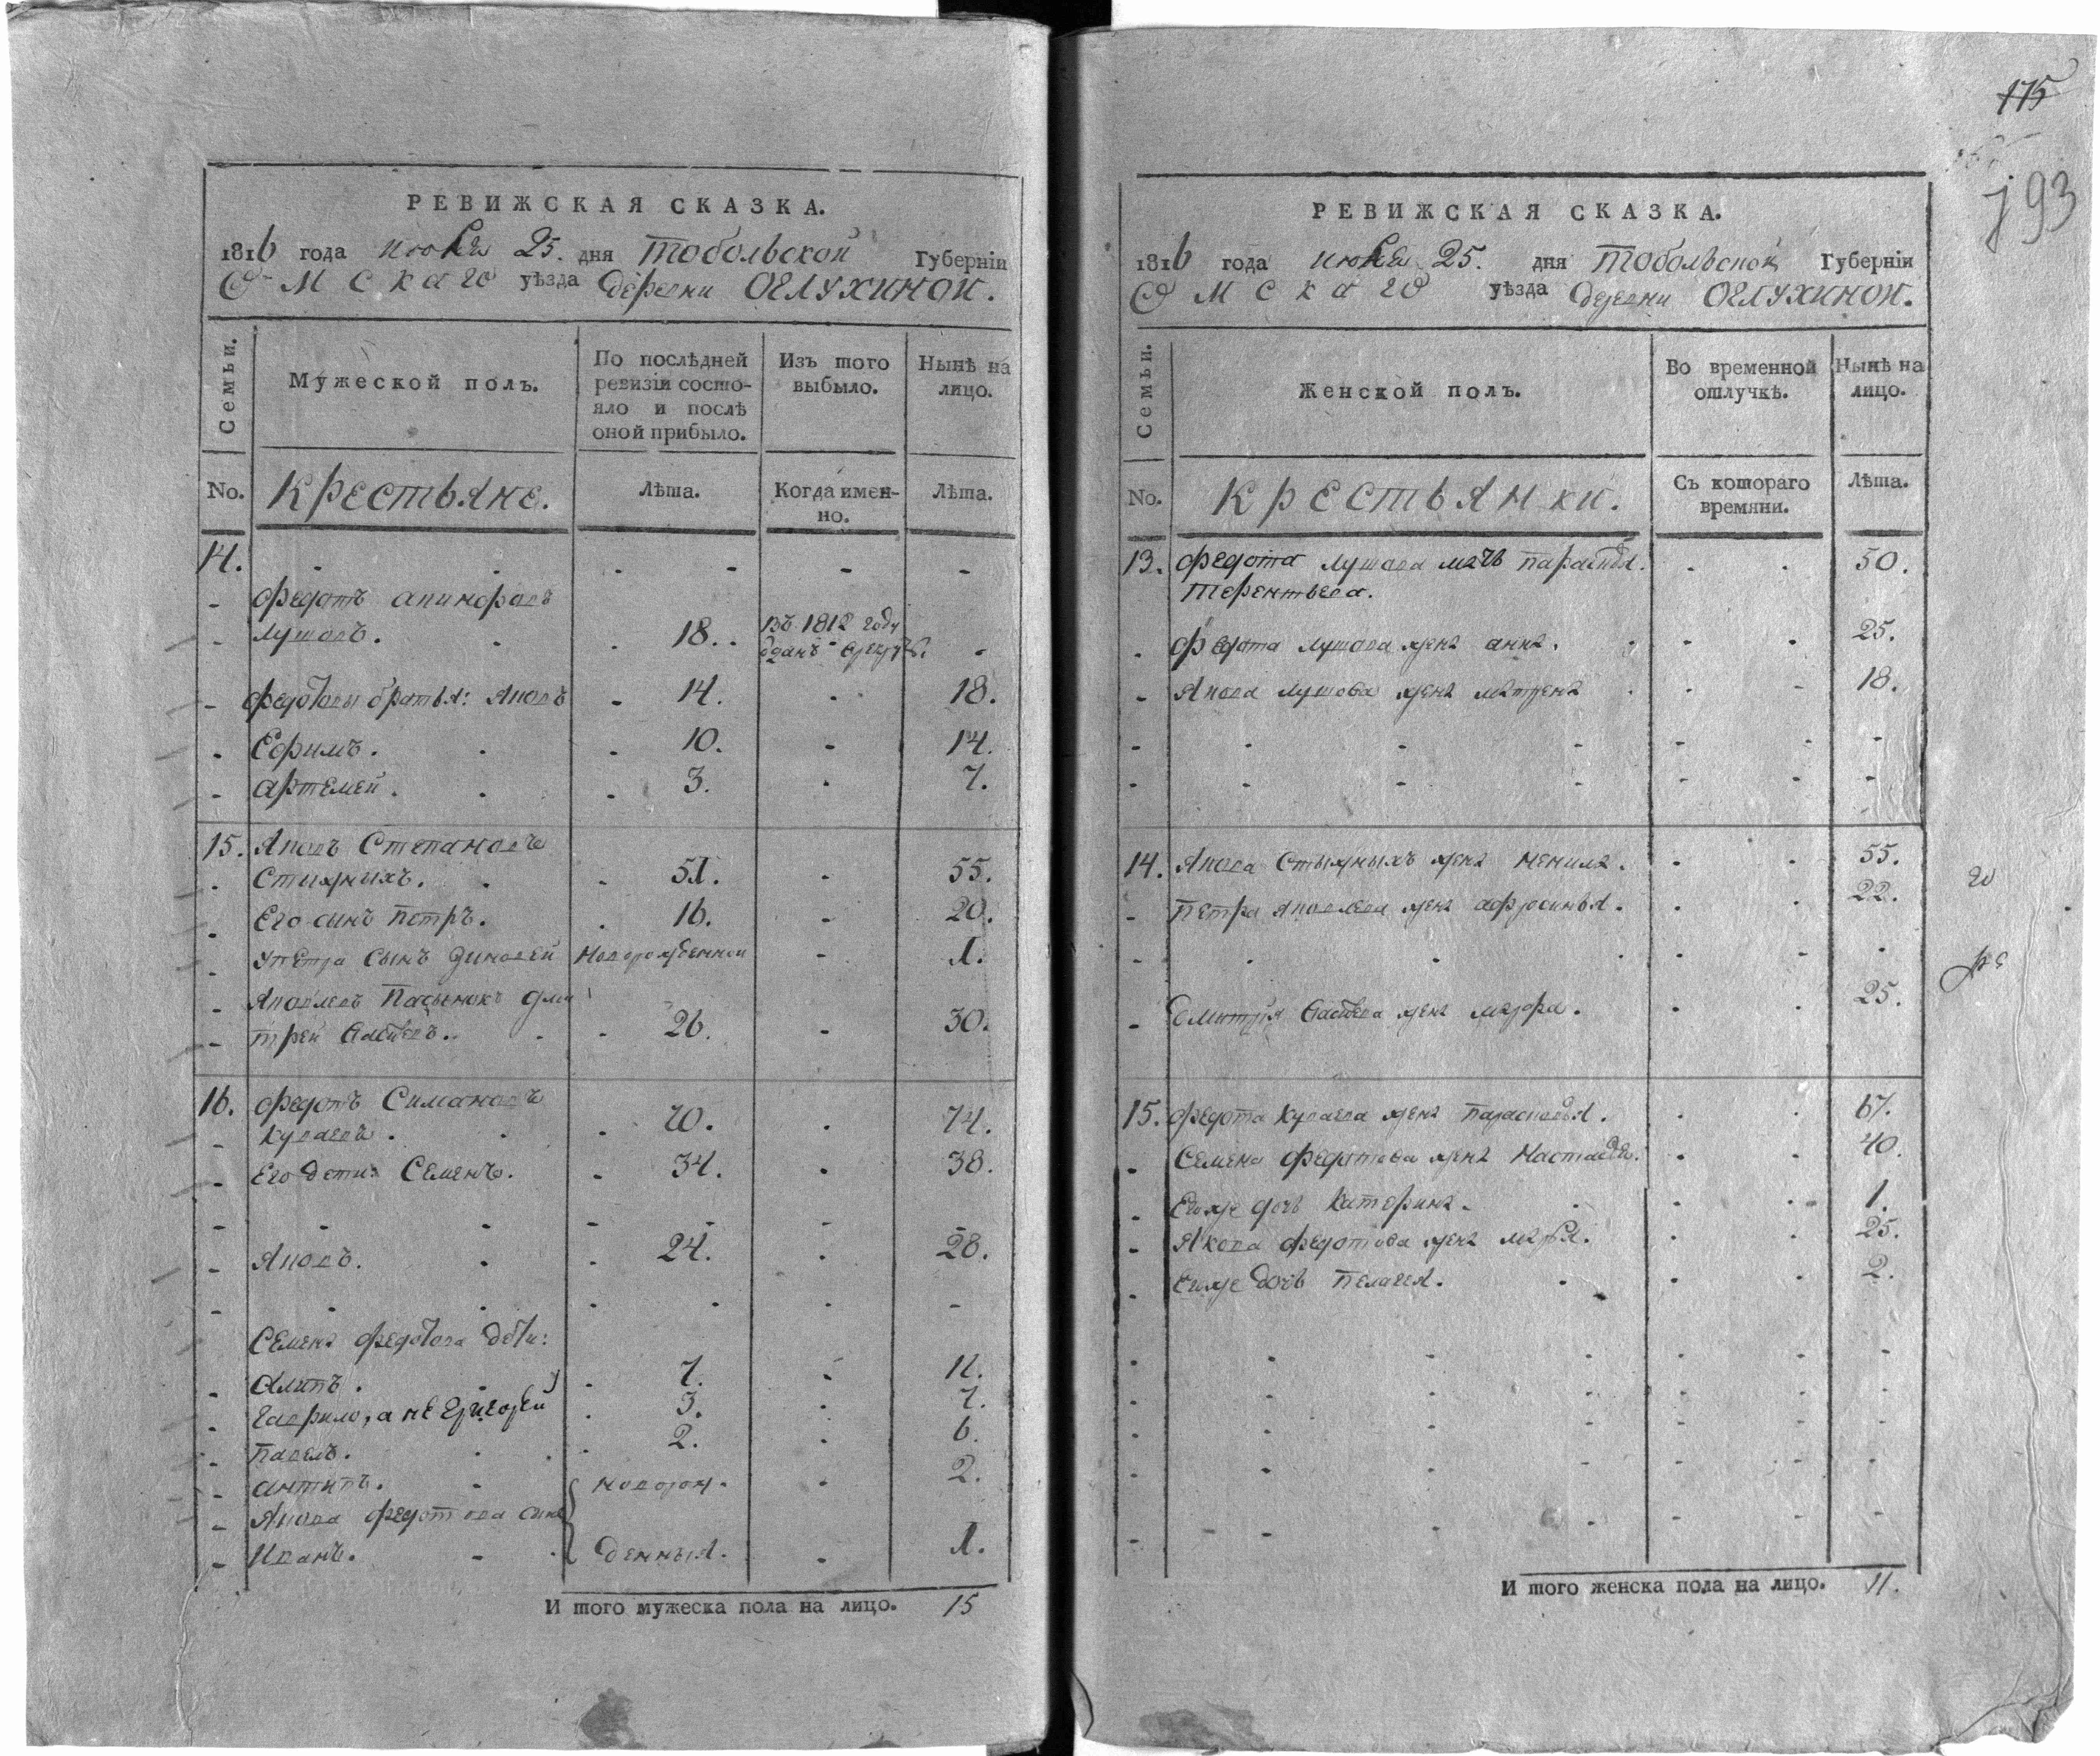 РЕВИЖСКАЯ СКАЗКА.
1816 года июля 25. дня Тобольской Губерніи
Омскаго уѣзда деревни Оглухиной.
Семьи.
Мужеской полъ.
По послѣдней ревизіи состояло и послѣ оной прибыло.
Изъ того выбыло.
Нынѣ на лицо.
No. Крестьяне. Лѣта. Когда именно. Лѣта.
14.
Федотъ
Лушовъ. 18. въ 1812 году
отданъ
Федотовы братья: Яковъ 14. 18.
Ефимъ. 10. 14.
Артемей. 3. 7.
15. Яковъ Степановъ
51. 55.
Его сынъ Петръ. 16. 20.
у Петра сынъ Зиновей новорожденной 1.
Яковлевъ пасынокъ Дми
трей 26. 30.
16. Федотъ Симановъ
70. 74.
Его дети: Семенъ. 34. 38.
Яковъ. 24. 28.
Семена Федотова дети:
7. 11.
Гаврило, а не Григорей 3. 7.
Павелъ. 2. 6.
Антипъ. новорож- 2.
Якова Федотова сынъ
Иванъ. денныя. 1.
И того мужеска пола на лицо. 15
175
193
РЕВИЖСКАЯ СКАЗКА.
1816 года июля 25. дня Тобольской Губерніи
Омскаго уѣзда деревни Оглухиной.
Семьи.
Женской полъ.
Во временной отлучкѣ.
Нынѣ на лицо.
No. Крестьянки. Съ котораго времяни. Лѣта.
13. Федота Лушова мать Парасковья 50.
Терентьева.
Федота Лушова жена Анна. 25.
Якова Лушова жена Матрена 18.
14. Якова жена Ненила. 55.
Петра Яковлева жена Афросинья. 22.
Дмитрія жена Марфа. 25.
15. Федота жена Парасковья. 67.
Семена Федотова жена Настасья. 40.
Ево же дочь Катерина. 1.
Якова Федотова жена Марья. 25.
Ево же дочь Пелагея. 2.
И того женска пола на лицо. 11.